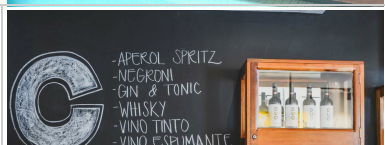 C
-APEROL SPRITZ
-NEGRONI
-GIN & TONIC
-WHISKY
-VINO TINTO
-VINO ESPUMANTE